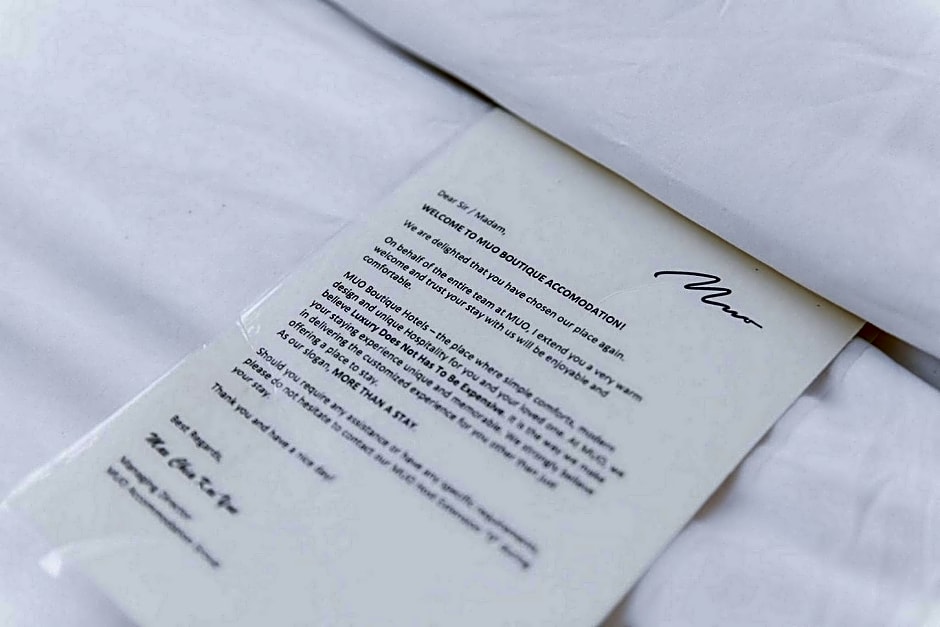 Muo
Dear Sir / Madam,
WELCOME TO MUO BOUTIQUE ACCOMODATION!
We are delighted that you have chosen our place again.
On behalf of the entire team at MUO, I extend you a very warm
welcome and trust your stay with us will be enjoyable and
comfortable.
MUO Boutique Hotels – the place where simple comforts, modern
design and unique Hospitality for you and your loved one. At MUO, we
believe Luxury Does Not Has To Be Expensive. It is the way we make
your staying experience unique and memorable. We strongly believe
in delivering the customized experience for you other than just
offering a place to stay.
As our slogan, MORE THAN A STAY.
Should you require any assistance or have any specific requirements,
please do not hesitate to contact our MUO Host Extension "0" during
your stay.
Thank you and have a nice day!
Best Regards,
Managing Director
MUO Accommodation Group